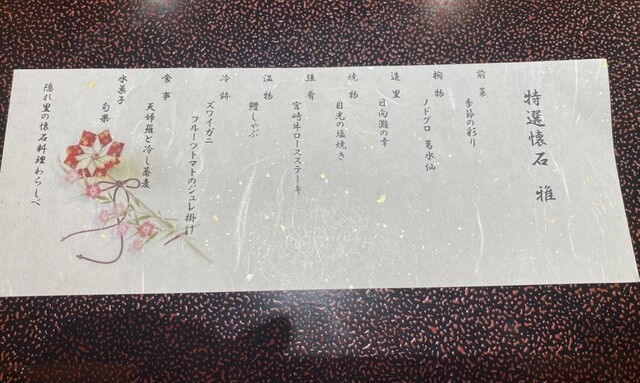 特選懐石 雅
前菜
季節の彩り
椀物
ノドグロ 葛水仙
造里
日向灘の幸
焼物
目光の塩焼き
強肴
宮崎牛ロースステーキ
温物
鱧しゃぶ
冷鉢
ズワイガニ
フルーツトマトのジュレ掛け
食事
天婦羅と冷し蕎麦
水菓子
旬果
隠れ里の懐石料理わらしべ